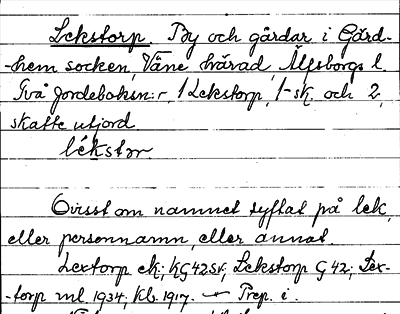 Lekstorp. By och gårdar i Gärd-
-hem socken, Väne härad, Älfsborgs l.
Två jordeboksn:r, 1 Lekstorp, 1 sk. och 2,
skatte utjord
lékstor
Ovisst om namnet syftat på lek,
eller personnamn, eller annat.
Lextorp ek; KG42Sk; Lekstorp G42; Lex-
-torp ml. 1934; Kb. 1917. Prep. i.